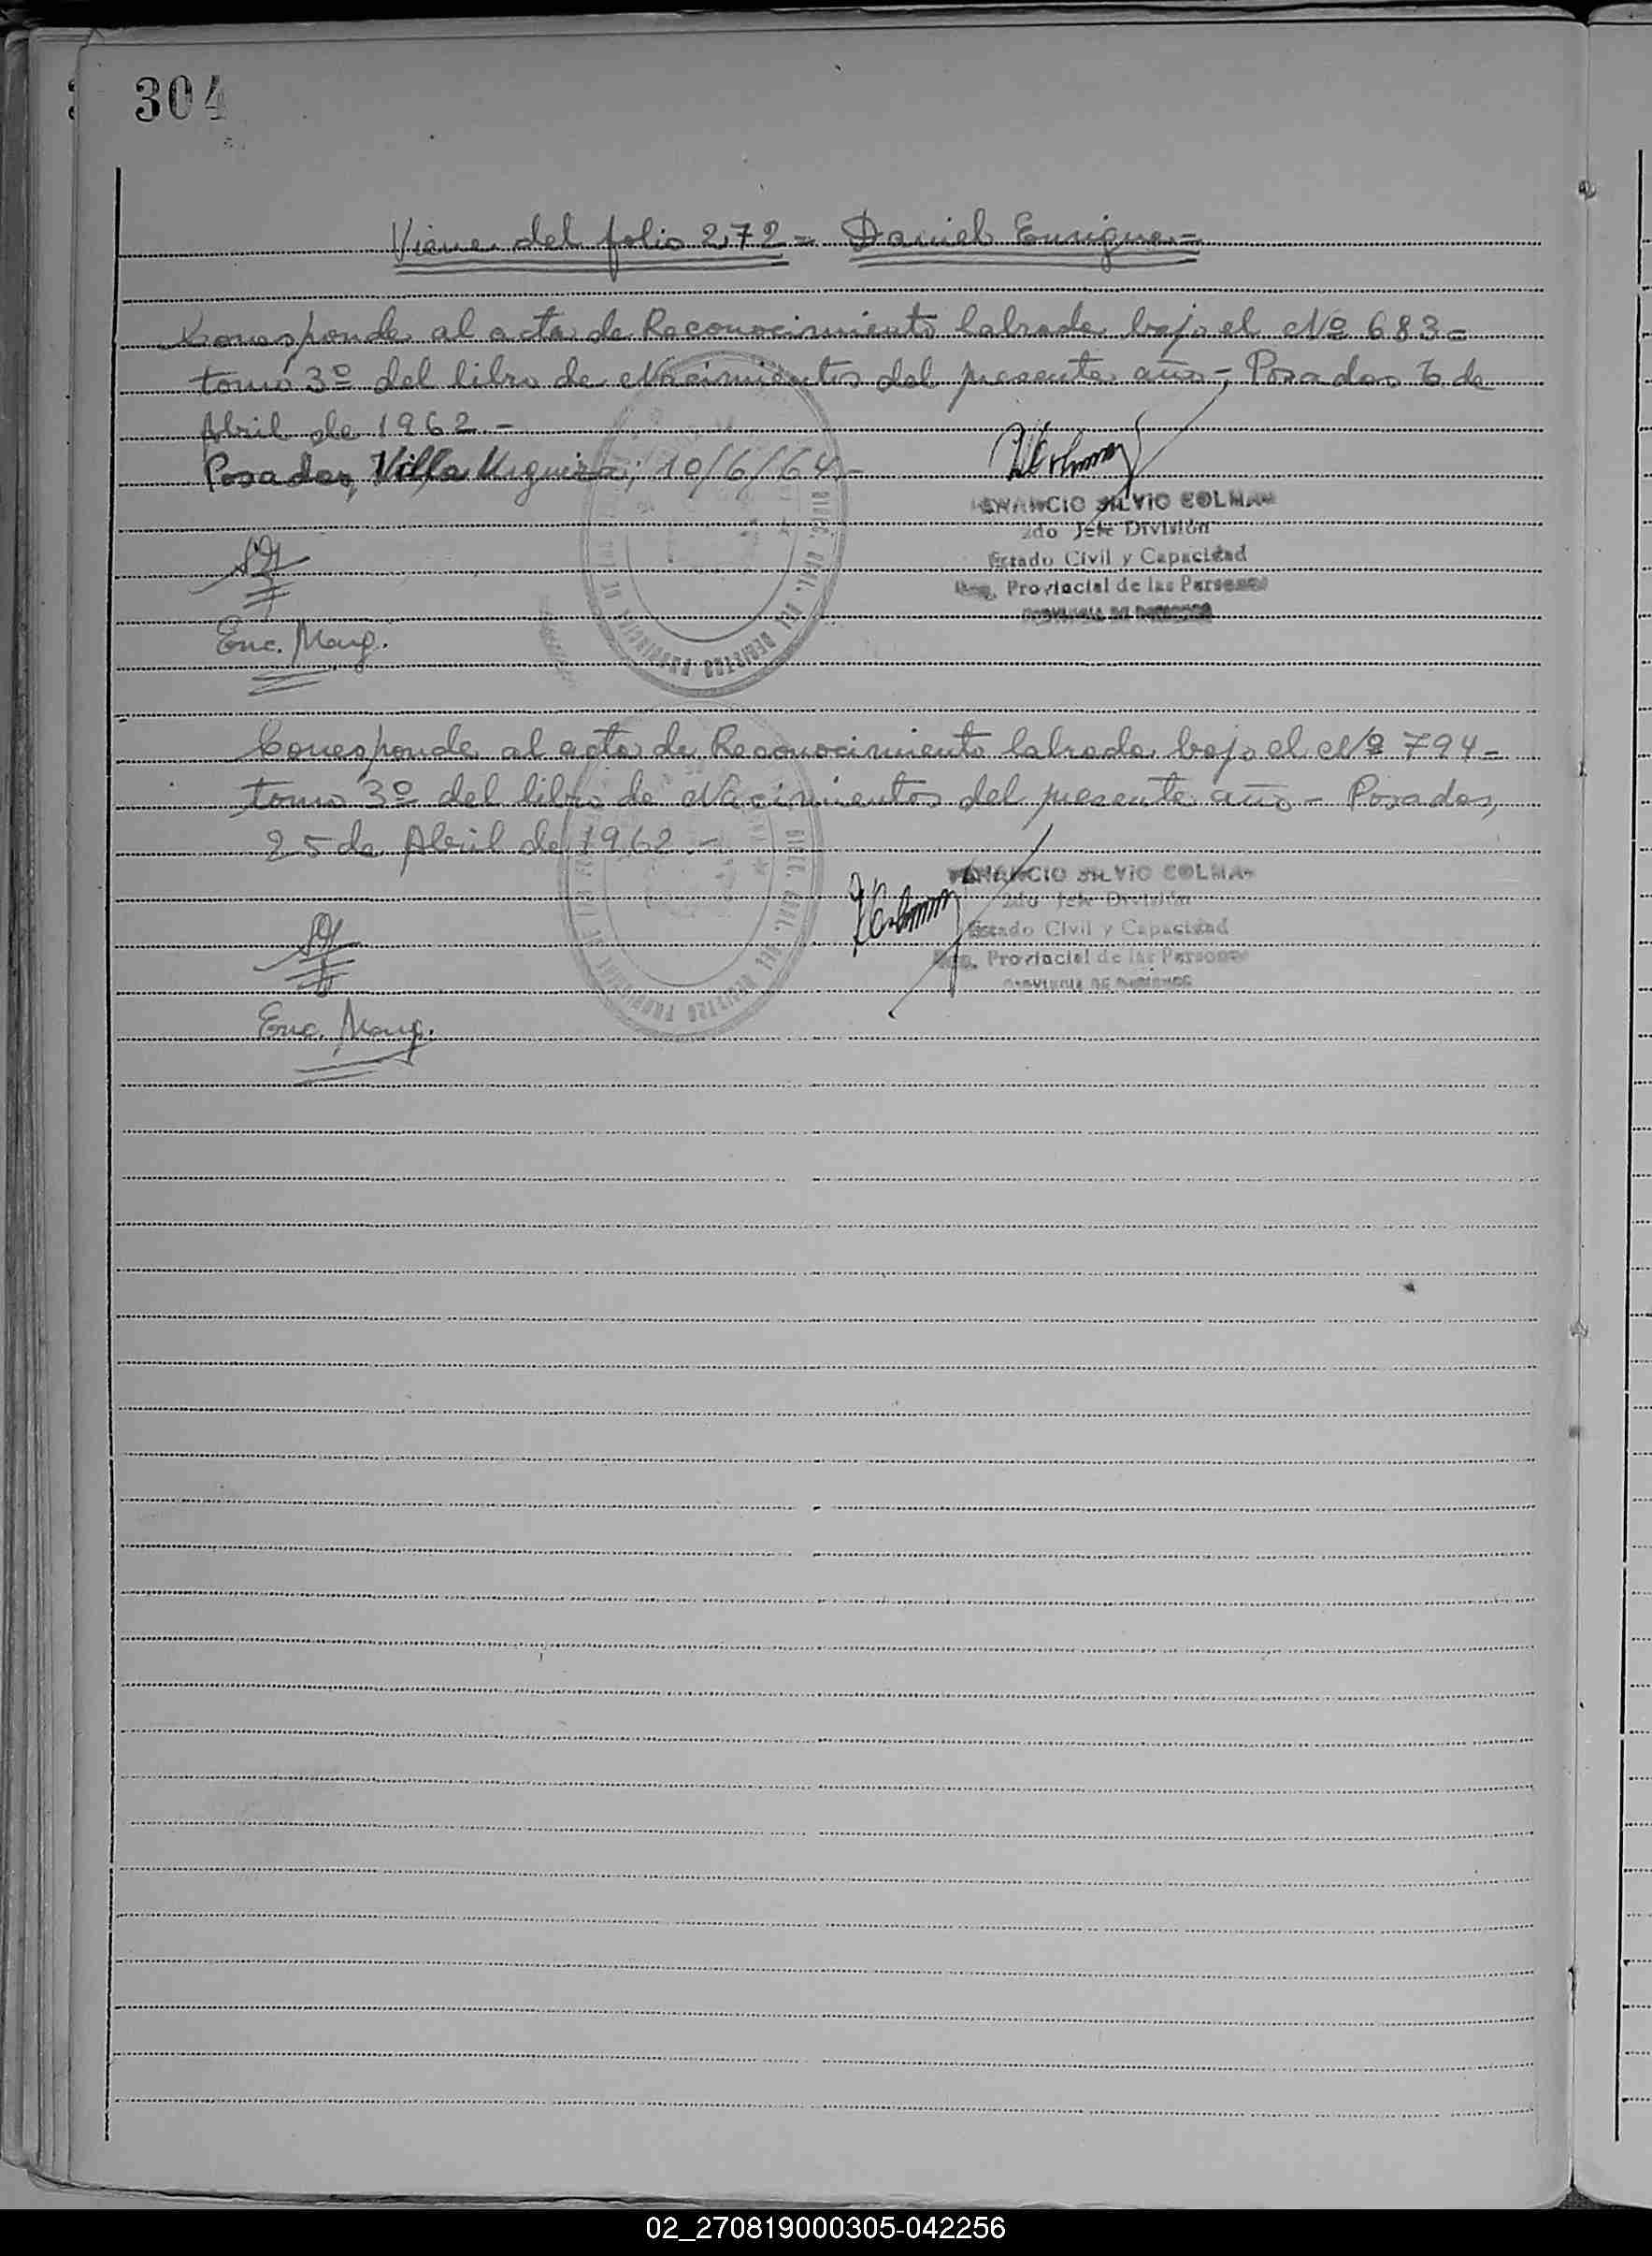 304
Viene del folio 272 = Daniel Enrique =
Corresponde al acta de Reconocimiento labrada bajo el Nº 683 -
tomo 3º del libro de Nacimientos del presente año -, Posadas 6 de
Abril de 1962. -
Posadas, Villa Urquiza; 10/6/64. -
VENANCIO SILVIO COLMAN
2do Jefe División
Estado Civil y Capacidad
Reg. Provincial de las Personas
PROVINCIA DE MISIONES
Enc. Marg.
DIREC. GRAL. DEL REGISTRO PROVINCIAL DE LAS
Corresponde al acta de Reconocimiento labrada bajo el Nº 794 -
tomo 3º del libro de Nacimientos del presente año - Posadas,
25 de Abril de 1962. -
VENANCIO SILVIO COLMAN
2do Jefe División
Estado Civil y Capacidad
Reg. Provincial de las Personas
PROVINCIA DE MISIONES
DIREC. GRAL. DEL REGISTRO PROVINCIAL DE LAS
Enc. Marg.
02_270819000305-042256